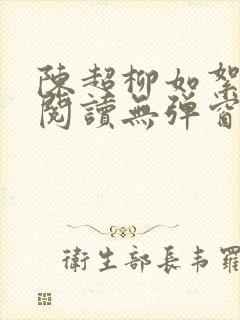 陳超柳如絮
閱讀無彈窗
衛生部長韦羅